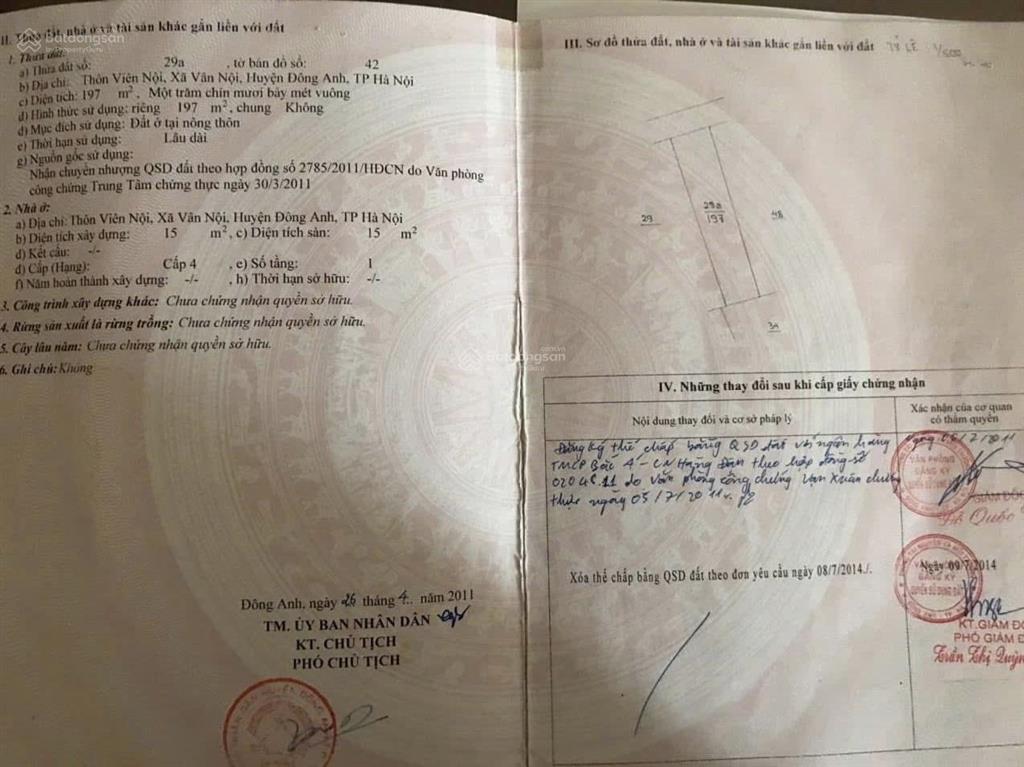 II. Thửa đất, nhà ở và tài sản khác gắn liền với đất
1. Thửa đất:
a) Thửa đất số: 29a , tờ bản đồ số: 42
b) Địa chỉ: Thôn Viên Nội, Xã Vân Nội, Huyện Đông Anh, TP Hà Nội
c) Diện tích: 197 m², Một trăm chín mươi bảy mét vuông
d) Hình thức sử dụng: riêng 197 m², chung Không
đ) Mục đích sử dụng: Đất ở tại nông thôn
e) Thời hạn sử dụng: Lâu dài
g) Nguồn gốc sử dụng:
Nhận chuyển nhượng QSD đất theo hợp đồng số 2785/2011/HĐCN do Văn phòng
công chứng Trung Tâm chứng thực ngày 30/3/2011
2. Nhà ở:
a) Địa chỉ: Thôn Viên Nội, Xã Vân Nội, Huyện Đông Anh, TP Hà Nội
b) Diện tích xây dựng: 15 m², c) Diện tích sàn: 15 m²
d) Kết cấu: -/-
đ) Cấp (Hạng): Cấp 4 , e) Số tầng: 1
f) Năm hoàn thành xây dựng: -/- , h) Thời hạn sở hữu: -/-
3. Công trình xây dựng khác: Chưa chứng nhận quyền sở hữu.
4. Rừng sản xuất là rừng trồng: Chưa chứng nhận quyền sở hữu.
5. Cây lâu năm: Chưa chứng nhận quyền sở hữu.
6. Ghi chú: Không
Đông Anh, ngày 26 tháng 4.. năm 2011
TM. ỦY BAN NHÂN DÂN
KT. CHỦ TỊCH
PHÓ CHỦ TỊCH
III. Sơ đồ thửa đất, nhà ở và tài sản khác gắn liền với đất TỶ LỆ 1/500
29a
197
29
48
34
IV. Những thay đổi sau khi cấp giấy chứng nhận
Nội dung thay đổi và cơ sở pháp lý
Xác nhận của cơ quan
có thẩm quyền
Đăng ký thế chấp bằng QSD đất với ngân hàng
TMCP Bắc Á - CN Hàng Đậu theo hợp đồng số
02046.11 do Văn phòng công chứng Vạn Xuân chứng
thực ngày 05/7/2011.
Ngày 05/7/2011
VĂN PHÒNG
ĐĂNG KÝ
QUYỀN SỬ DỤNG ĐẤT
GIÁM ĐỐ
Quốc
Xóa thế chấp bằng QSD đất theo đơn yêu cầu ngày 08/7/2014./.
Ngày 09/7/2014
ĐĂNG KÝ
QUYỀN SỬ DỤNG ĐẤT
KT.GIÁM ĐỐ
PHÓ GIÁM Đ
Trần Thị Quỳn
Batdongsan
by PropertyGuru
Batdongsan
.com.vn